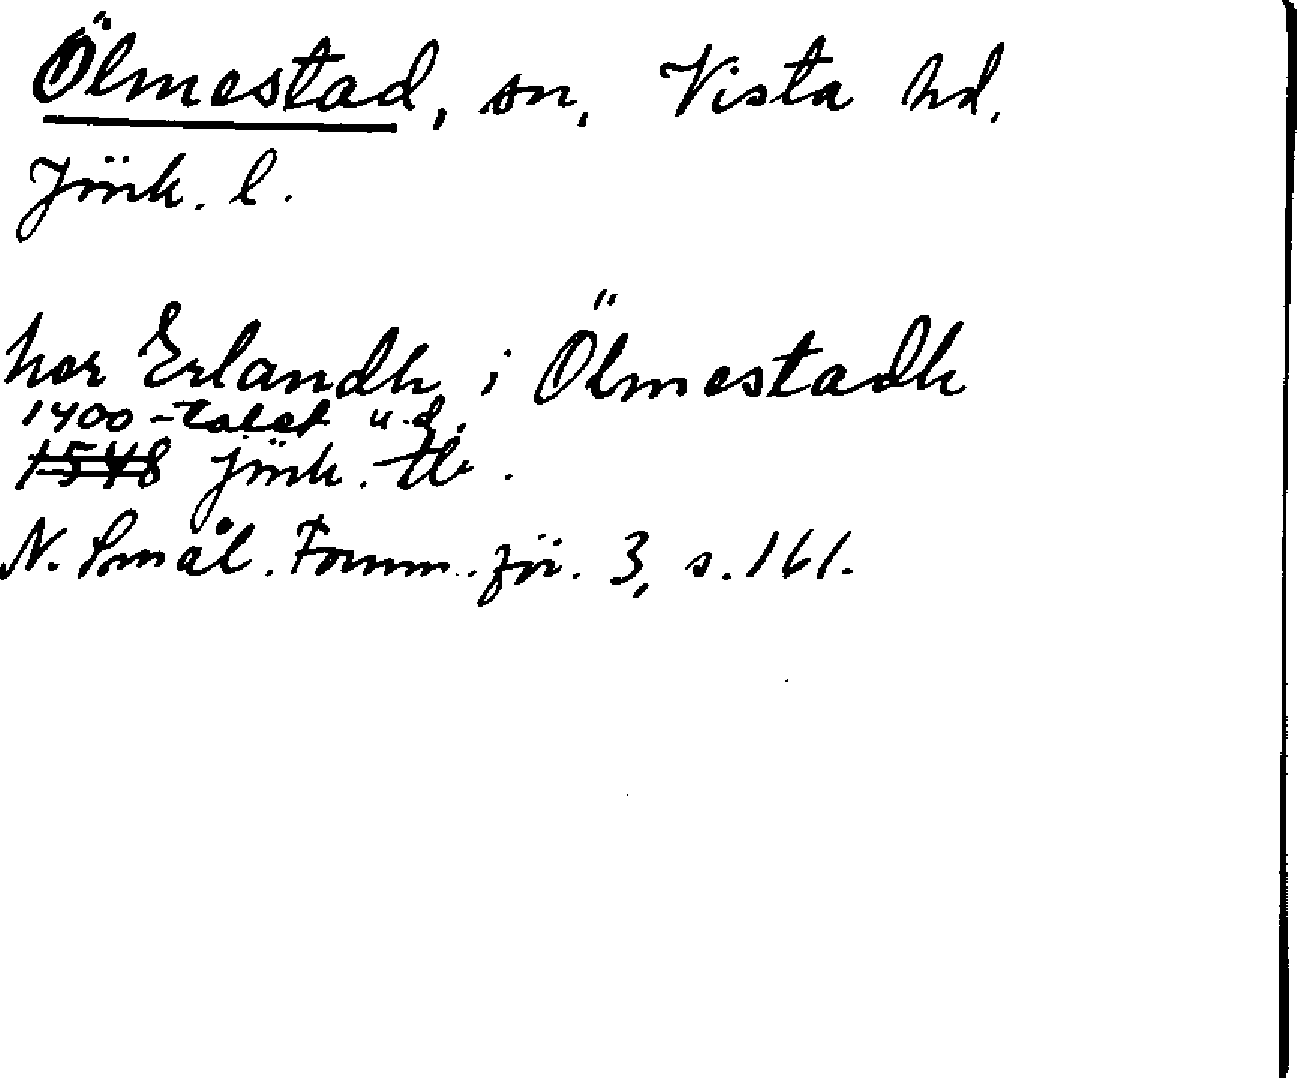 Ölmestad, sn, Vista hd.
Jönk. l.
her Erlandh i Ölmestadh
1400-talet u.d.
1548 Jönk. tb.
N. Smål. Fornm. för. 3, s. 161.